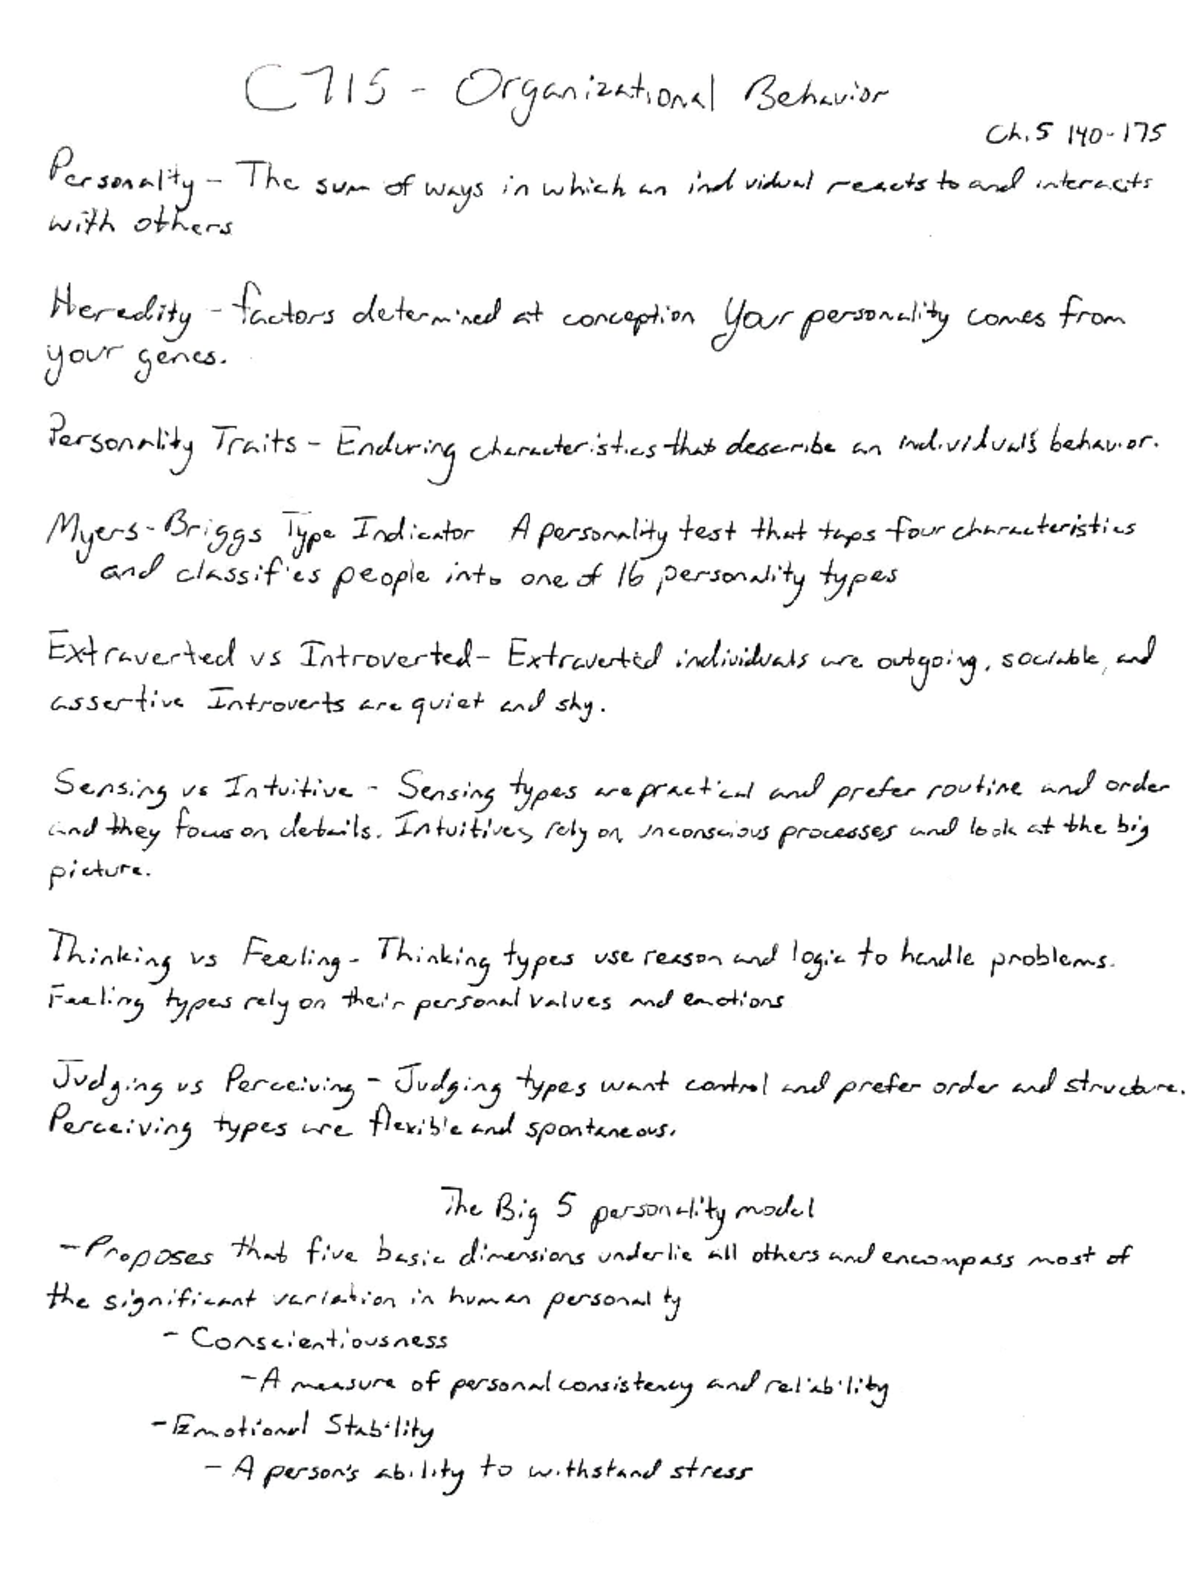 C715 - Organizational Behavior
Ch. 5 140-175
Personality - The sum of ways in which an individual reacts to and interacts
with others
Heredity - factors determined at conception Your personality comes from
your genes.
Personality Traits - Enduring characteristics that describe an individual's behavior.
Myers-Briggs Type Indicator A personality test that taps four characteristics
and classifies people into one of 16 personality types
Extraverted vs Introverted - Extraverted individuals are outgoing, sociable, and
assertive Introverts are quiet and shy.
Sensing vs Intuitive - Sensing types are practical and prefer routine and order
and they focus on details. Intuitives rely on unconscious processes and look at the big
picture.
Thinking vs Feeling - Thinking types use reason and logic to handle problems.
Feeling types rely on their personal values and emotions
Judging vs Perceiving - Judging types want control and prefer order and structure.
Perceiving types are flexible and spontaneous.
The Big 5 personality model
- Proposes that five basic dimensions underlie all others and encompass most of
the significant variation in human personality
- Conscientiousness
- A measure of personal consistency and reliability
- Emotional Stability
- A person's ability to withstand stress